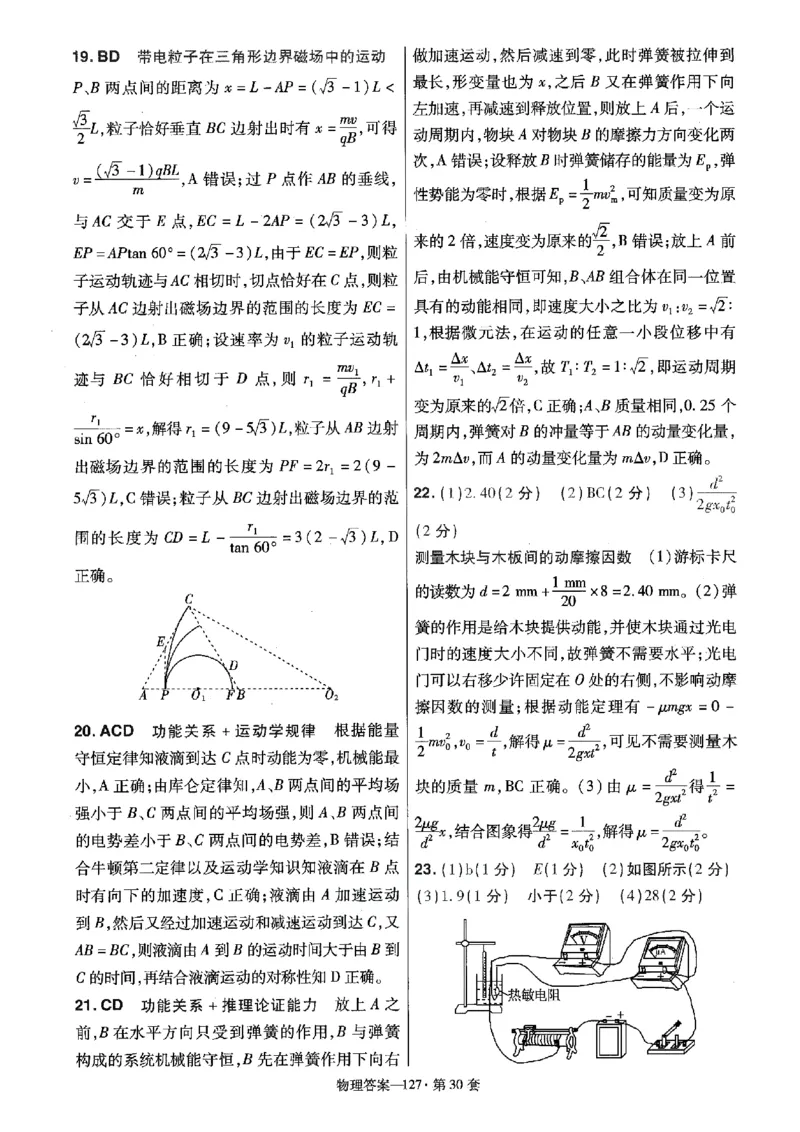 19. BD 带电粒子在三角形边界磁场中的运动
P、B 两点间的距离为 x = L - AP = (√3 - 1)L <
√3/2 L,粒子恰好垂直 BC 边射出时有 x = mv/qB,可得
v = (√3 - 1)qBL/m,A 错误;过 P 点作 AB 的垂线,
与 AC 交于 E 点,EC = L - 2AP = (2√3 - 3)L,
EP = APtan 60° = (2√3 - 3)L,由于 EC = EP,则粒
子运动轨迹与 AC 相切时,切点恰好在 C 点,则粒
子从 AC 边射出磁场边界的范围的长度为 EC =
(2√3 - 3)L,B 正确;设速率为 v₁ 的粒子运动轨
迹与 BC 恰好相切于 D 点,则 r₁ = mv₁/qB, r₁ +
r₁/sin 60° = x,解得 r₁ = (9 - 5√3)L,粒子从 AB 边射
出磁场边界的范围的长度为 PF = 2r₁ = 2(9 -
5√3)L,C 错误;粒子从 BC 边射出磁场边界的范
围的长度为 CD = L - r₁/tan 60° = 3(2 - √3)L,D
正确。
C
E
D
A P O₁ F B O₂
20. ACD 功能关系 + 运动学规律 根据能量
守恒定律知液滴到达 C 点时动能为零,机械能最
小,A 正确;由库仑定律知,A、B 两点间的平均场
强小于 B、C 两点间的平均场强,则 A、B 两点间
的电势差小于 B、C 两点间的电势差,B 错误;结
合牛顿第二定律以及运动学知识知液滴在 B 点
时有向下的加速度,C 正确;液滴由 A 加速运动
到 B,然后又经过加速运动和减速运动到达 C,又
AB = BC,则液滴由 A 到 B 的运动时间大于由 B 到
C 的时间,再结合液滴运动的对称性知 D 正确。
21. CD 功能关系 + 推理论证能力 放上 A 之
前,B 在水平方向只受到弹簧的作用,B 与弹簧
构成的系统机械能守恒,B 先在弹簧作用下向右
做加速运动,然后减速到零,此时弹簧被拉伸到
最长,形变量也为 x,之后 B 又在弹簧作用下向
左加速,再减速到释放位置,则放上 A 后,一个运
动周期内,物块 A 对物块 B 的摩擦力方向变化两
次,A 错误;设释放 B 时弹簧储存的能量为 Eₚ,弹
性势能为零时,根据 Eₚ = 1/2 mvₘ²,可知质量变为原
来的 2 倍,速度变为原来的 √2/2,B 错误;放上 A 前
后,由机械能守恒可知,B、AB 组合体在同一位置
具有的动能相同,即速度大小之比为 v₁:v₂ = √2:
1,根据微元法,在运动的任意一小段位移中有
Δt₁ = Δx/v₁、Δt₂ = Δx/v₂,故 T₁:T₂ = 1:√2,即运动周期
变为原来的√2倍,C 正确;A、B 质量相同,0.25 个
周期内,弹簧对 B 的冲量等于 AB 的动量变化量,
为 2mΔv,而 A 的动量变化量为 mΔv,D 正确。
22. (1)2.40(2 分) (2)BC(2 分) (3) d²/2gx₀t₀²
(2 分)
测量木块与木板间的动摩擦因数 (1)游标卡尺
的读数为 d = 2 mm + 1 mm/20 × 8 = 2.40 mm。(2)弹
簧的作用是给木块提供动能,并使木块通过光电
门时的速度大小不同,故弹簧不需要水平;光电
门可以右移少许固定在 O 处的右侧,不影响动摩
擦因数的测量;根据动能定理有 - μmgx = 0 -
1/2 mv₀²,v₀ = d/t,解得 μ = d²/2gxt²,可见不需要测量木
块的质量 m,BC 正确。(3)由 μ = d²/2gxt² 得 1/t² =
2μg/d² x,结合图象得 2μg/d² = 1/x₀t₀²,解得 μ = d²/2gx₀t₀²。
23. (1)b(1 分) E(1 分) (2)如图所示(2 分)
(3)1.9(1 分) 小于(2 分) (4)28(2 分)
V
μA
热敏电阻
- +
物理答案—127 · 第 30 套